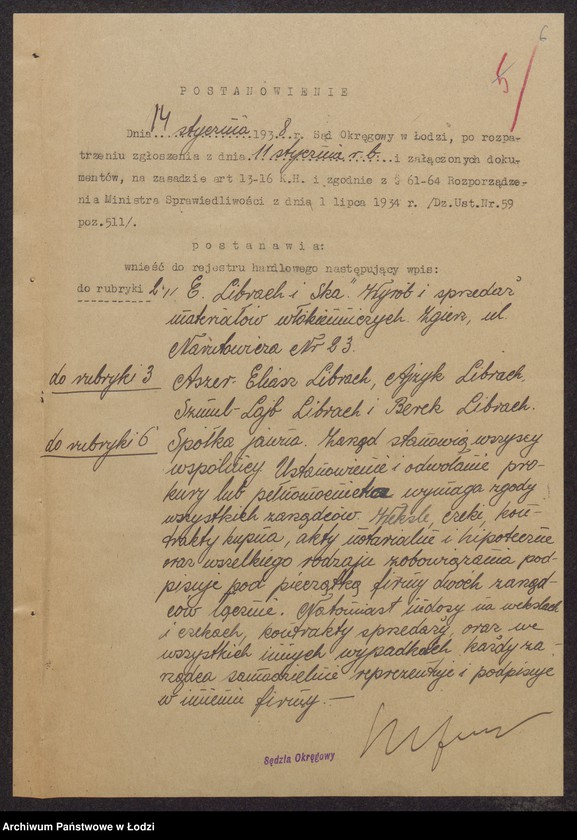 6
5
POSTANOWIENIE
Dnia 14 stycznia 1938 r. Sąd Okręgowy w Łodzi, po rozpa-
trzeniu zgłoszenia z dnia 11 stycznia r.b. i załączonych doku-
mentów, na zasadzie art 13-16 K.H. i zgodnie z § 61-64 Rozporządze-
nia Ministra Sprawiedliwości z dnia 1 lipca 1934 r. /Dz.Ust.Nr.59
poz.511/.
postanawia:
wnieść do rejestru handlowego następujący wpis:
do rubryki 2 „E. Librach i Ska." Wyrób i sprzedaż
materiałów włókienniczych. Zgierz, ul
Narutowicza Nr 23.
do rubryki 3 Aszer-Eliasz Librach, Ajzyk Librach,
Szmul-Lajb Librach i Berek Librach.
do rubryki 6 Spółka jawna. Zarząd stanowią wszyscy
wspólnicy Ustanowienie i odwołanie pro-
kury lub pełnomocnictwa wymaga zgody
wszystkich zarządców. Weksle, czeki, kon-
trakty kupna, akty notarialne i hipoteczne
oraz wszelkiego rodzaju zobowiązania pod-
pisuje pod pieczątką firmy dwóch zarząd-
ców łącznie. Natomiast indosy na wekslach
i czekach, kontrakty sprzedaży, oraz we
wszystkich innych wypadkach każdy za-
rządca samodzielnie reprezentuje i podpisuje
w imieniu firmy.—
Sędzia Okręgowy
Archiwum Państwowe w Łodzi